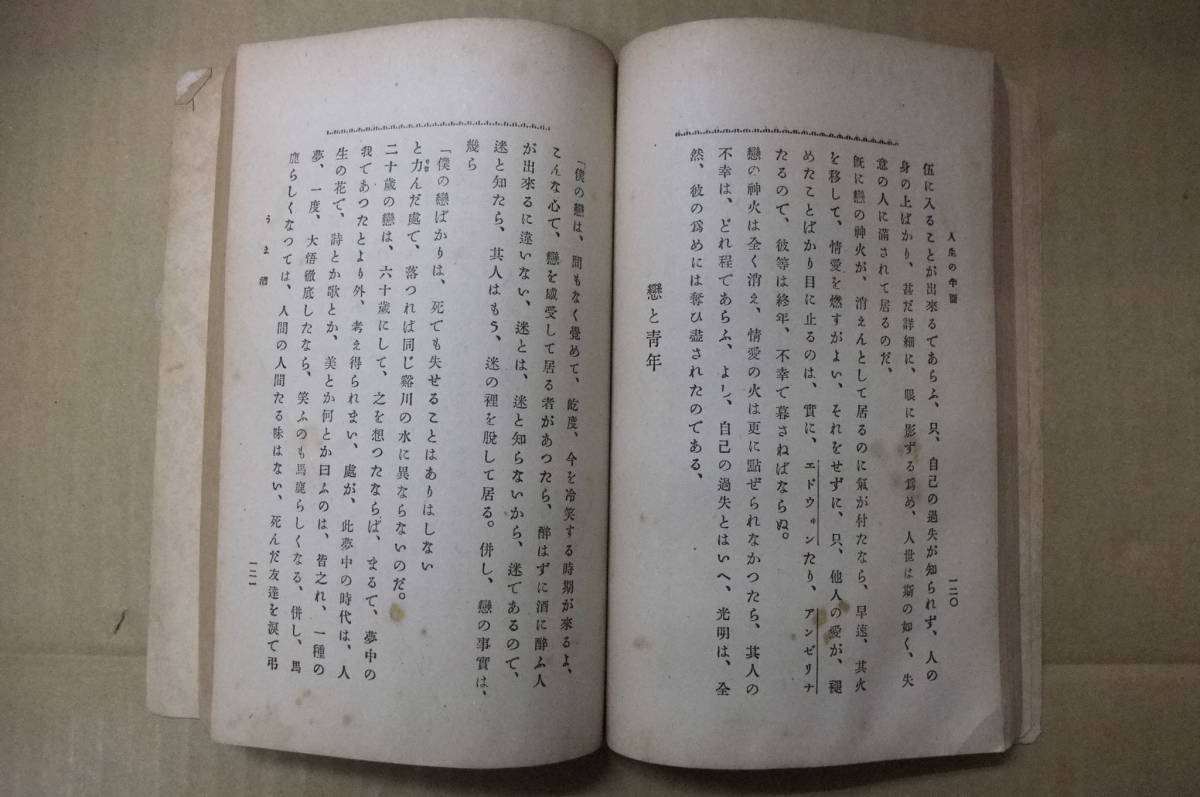 人生の午睡
一二〇
伍に入ることが出來るであらふ、只、自己の過失が知られず、人の
身の上ばかり、甚だ詳細に、眼に影ずる爲め、人世は斯の如く、失
意の人に滿されて居るのだ、
既に戀の神火が、消えんとして居るのに氣が付たなら、早速、其火
を移して、情愛を燃すがよい、それをせずに、只、他人の愛が、褪
めたことばかり目に止るのは、實に、エドウヰンたり、アンゼリナ
たるので、彼等は終年、不幸で暮さねばならぬ。
戀の神火は全く消え、情愛の火は更に點ぜられなかつたら、其人の
不幸は、どれ程であらふ、よし、自己の過失とはいへ、光明は、全
然、彼の爲めには奪ひ盡されたのである、
戀と靑年
「僕の戀は、間もなく覺めて、屹度、今を冷笑する時期が來るよ、
こんな心で、戀を感受して居る者があつたら、醉はずに酒に醉ふ人
が出來るに違いない、迷とは、迷と知らないから、迷であるので、
迷と知たら、其人はもう、迷の裡を脫して居る。併し、戀の事實は、
幾ら
「僕の戀ばかりは、死でも失せることはありはしない
と力んだ處で、落つれば同じ谿川の水に異ならないのだ。
二十歲の戀は、六十歲にして、之を想つたならば、まるで、夢中の
我であつたとより外、考え得られまい、處が、此夢中の時代は、人
生の花で、詩とか歌とか、美とか何とか曰ふのは、皆之れ、一種の
夢、一度、大悟徹底したなら、笑ふのも馬鹿らしくなる、併し、馬
鹿らしくなつては、人間の人間たる味はない、死んだ友達を淚で弔
うま酒
一二一